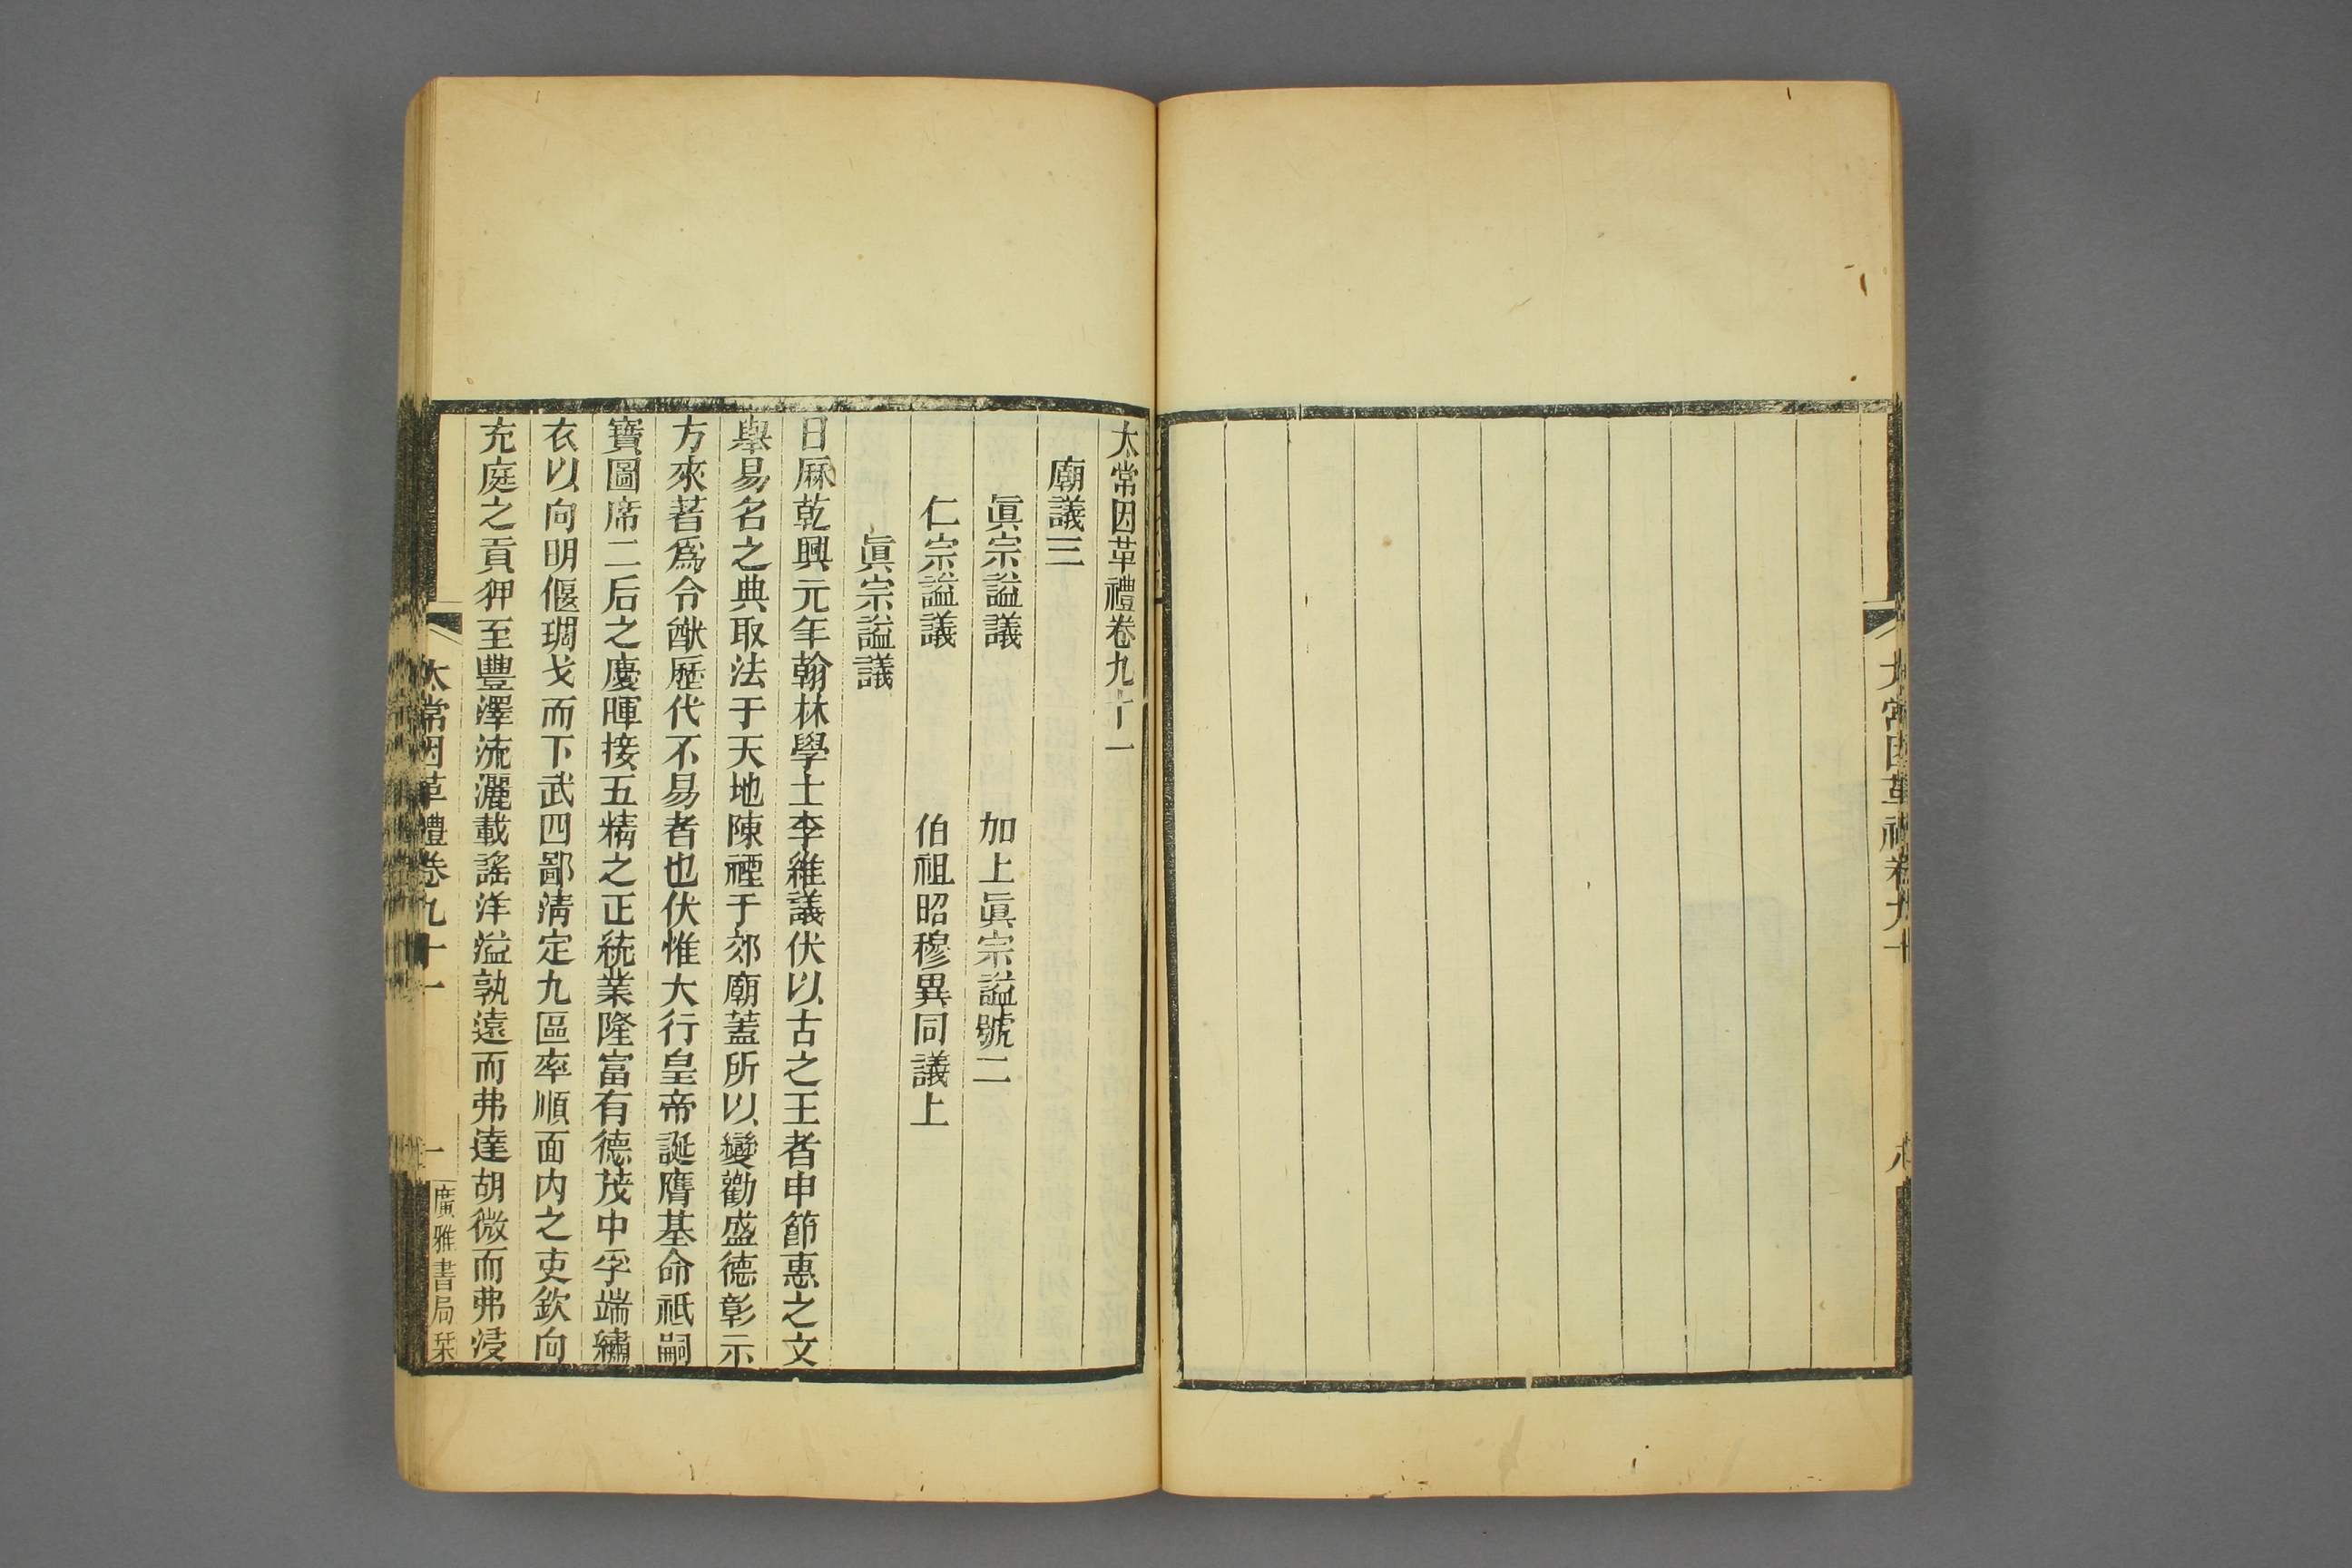 太常因革禮卷九十一
廟議三
眞宗謚議　加上眞宗謚號二
仁宗謚議　伯祖昭穆異同議上
眞宗謚議
日厤乾興元年翰林學士李維議伏以古之王者申節惠之文
舉易名之典取法于天地陳禋于郊廟蓋所以變勸盛德彰示
方來著爲令猷歷代不易者也伏惟大行皇帝誕膺基命祗嗣
寶圖席二后之慶暉接五精之正統業隆富有德茂中孚端繡
衣以向明偃琱戈而下武四鄙淸定九區率順面内之吏欽向
充庭之貢狎至豐澤流灑載謠洋溢孰遠而弗達胡微而弗浸
太常因革禮卷九十一
一
廣雅書局栞
太常因革禮卷九十